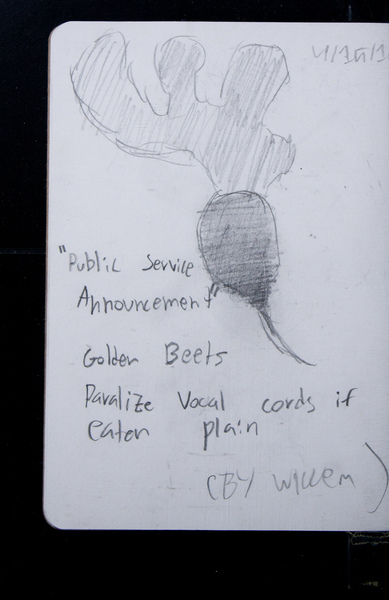 4/15/1
"Public Service
Announcement"
Golden Beets
Paralize Vocal cords if
eaten plain
(BY Willem)